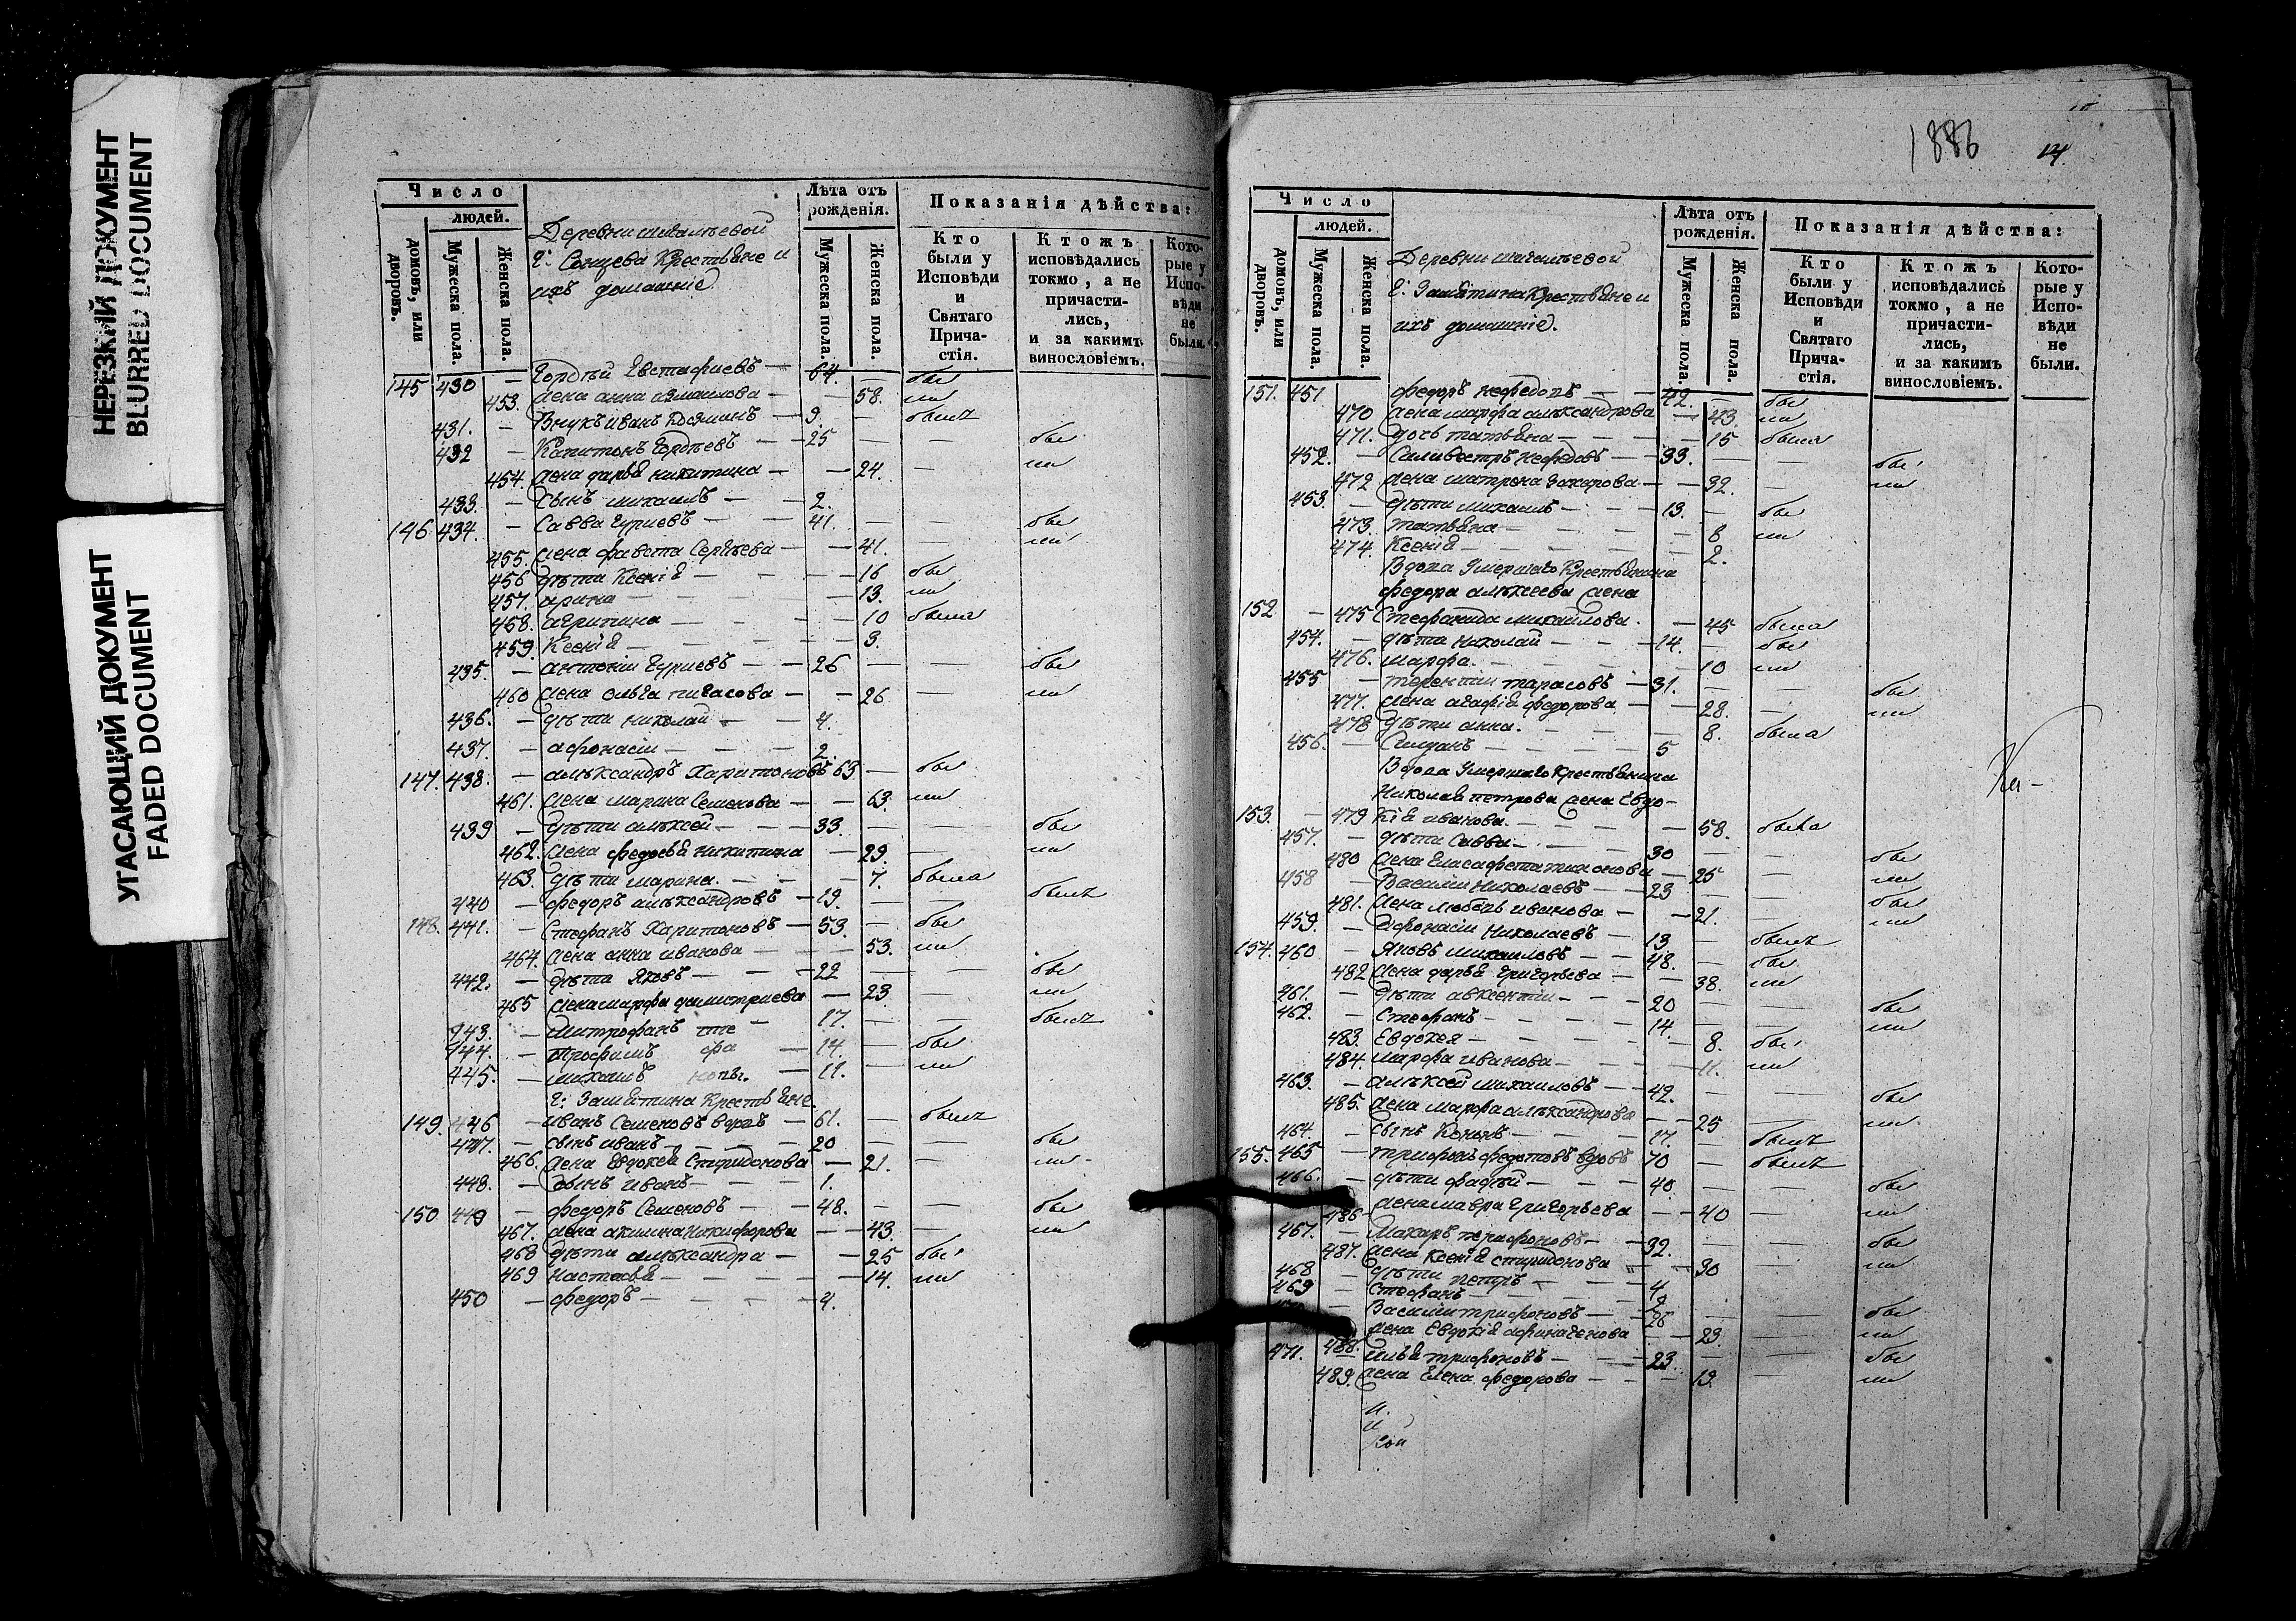 НЕРЕЗКИЙ ДОКУМЕНТ
BLURRED DOCUMENT
УГАСАЮЩИЙ ДОКУМЕНТ
FADED DOCUMENT
Число
людей.
домовъ, или дворовъ.
Мужеска пола.
Женска пола.
Деревни
г: Сонцева Крестьяне и
ихъ домашнiе
Лѣта отъ рожденiя.
Мужеска пола.
Женска пола.
Показанiя дѣйства:
Кто были у Исповѣди и Святаго Прича-стiя.
Ктожъ исповѣдались токмо, а не причасти-лись, и за какимъ винословiемъ.
Кото-рые у Испо-вѣди не были.
145 430 — Гордѣй Евстафиевъ — 64. — бы
453. жена анна измаилова — — 58. ли
431. — Внукъ иванъ Козминъ — 9. — былъ
432 — Капитонъ Гордѣевъ — 25 — — бы
454. жена дарья никитина — — 24. — ли
433. — сынъ михаилъ — — 2.
146 434. — Савва Гуриевъ — — 41. — — бы
455. жена фавста Сергѣева — — 41. — ли
456 дѣти Ксенiя — — — — 16 бы
457. арина — — — 13. ли
458. агрипина — — — — 10 была
459. Ксенiя — — — — 3.
435. — антонiи Гуриевъ — — 26 — — бы
460 жена ольга пигасова — — 26 — ли
436. — дѣти николай — — 4.
437. — афонасiи — — — 2.
147. 438. — алѣксандръ Харитоновъ 63 — бы
461. жена марина Семенова — — 63. ли
439 — дѣти алѣксей — — — 33. — — бы
462. жена федосья никитина — 29. — ли
463. дѣти марина. — — — 7. была
440 — федоръ алѣксандровъ — 19. — — былъ
148. 441. — Стефанъ Харитоновъ — 53. — бы
464. жена анна иванова — — 53. ли
442. — дѣти Яковъ — — — 22 — — бы
465 жена марфа димитриева — 23. — ли
443. — митрофанъ — 17. — — былъ
444. — трофимъ — 14. — бы
445. — михаилъ — 11. — ли
г: Замятина Крестьяне.
149. 446 — иванъ Семеновъ вдовъ — 61. — былъ
447. — сынъ иванъ — — — 20 — — бы
466. жена Евдокея Спиридонова — 21. — ли
448. — сынъ иванъ — — — 1.
150 449 — федоръ Семеновъ — — 48. — — бы
467. жена акилина никифорова — — 43. — ли
468 дѣти алѣксандра — — 25 бы
469 настасья — — — — — 14. ли
450 — федоръ — — — — 4.
1886
14.
Число
людей.
домовъ, или дворовъ.
Мужеска пола.
Женска пола
Деревни
г: Замятина Крестьяне и
ихъ домашнiе.
Лѣта отъ рожденiя.
Мужеска пола.
Женска пола.
Показанiя дѣйства:
Кто были у Исповѣди и Святаго Прича-стiя.
Ктожъ исповѣдались токмо, а не причасти-лись, и за какимъ винословiемъ.
Кото-рые у Испо-вѣди не были.
151. 451 федоръ нефедовъ — — 42. — бы
470 жена марфа алѣксандрова — 43. ли
471. дочь татьяна — — — — 15 была
452. — Саливестръ нефедовъ — — 33. — — бы
472 жена матрена захарова — — 32. — ли
453. — дѣти михаилъ — — — 13. — бы
473. татьяна — — — — 8 ли
474. Ксенiя — — — — 2.
Вдова Умершаго Крестьянина
федора алѣксеева жена
152 — 475 Стефанида михайлова. — 45 была
454. — дѣти николай — — — 14. — бы
476. марфа. — — — — 10 ли
455 — терентiи тарасовъ — 31. — — бы
477. жена агафiя федорова — — 28. — ли
478 дѣти анна. — — — 8. была
456. — — — — — 5
Вдова Умершаго Крестьянина
Николая петрова жена Евдо-
153. — 479 кiя иванова. — — — — 58. была
457. — дѣти Савва — — — 30 — — бы
480 жена — 25 — ли
458 — Василiи Николаевъ — — 23 — — бы
481. жена любовь иванова — — 21. — ли
459. — афонасiи Николаевъ — 13 — былъ
154. 460 — Яковъ михаиловъ — — 48. — бы
482 жена дарья григорьева — — 38. ли
461. — дѣти авксентiи — — — 20 — — бы
462. — Стефанъ — — — — 14. — — ли
483. Евдокея — — — — — 8. бы
484. марфа иванова — — — 11. ли
463. — алѣксей михаиловъ — — 42. — — бы
485. жена марфа алѣксандрова — — 25 — ли
464. — сынъ — — — 17. — былъ
155. 465 — трифонъ федотовъ вдовъ 70 — былъ
466. — дѣти фадѣй — — — 40. — — бы
486 жена мавра григорьева — — 40 — ли
467. — Макаръ трифоновъ — — 32. — — бы
487. жена Ксенiя спиридонова — 30 — ли
468 — дѣти петръ — — — 4
469 — Стефанъ — — — — 2
— Василiи трифоновъ — — 26 — — бы
488. жена Евдокiя — — 23. — ли
471. — илья трифоновъ — — — 23. — — бы
489. жена Елена федорова — — — 19. — ли